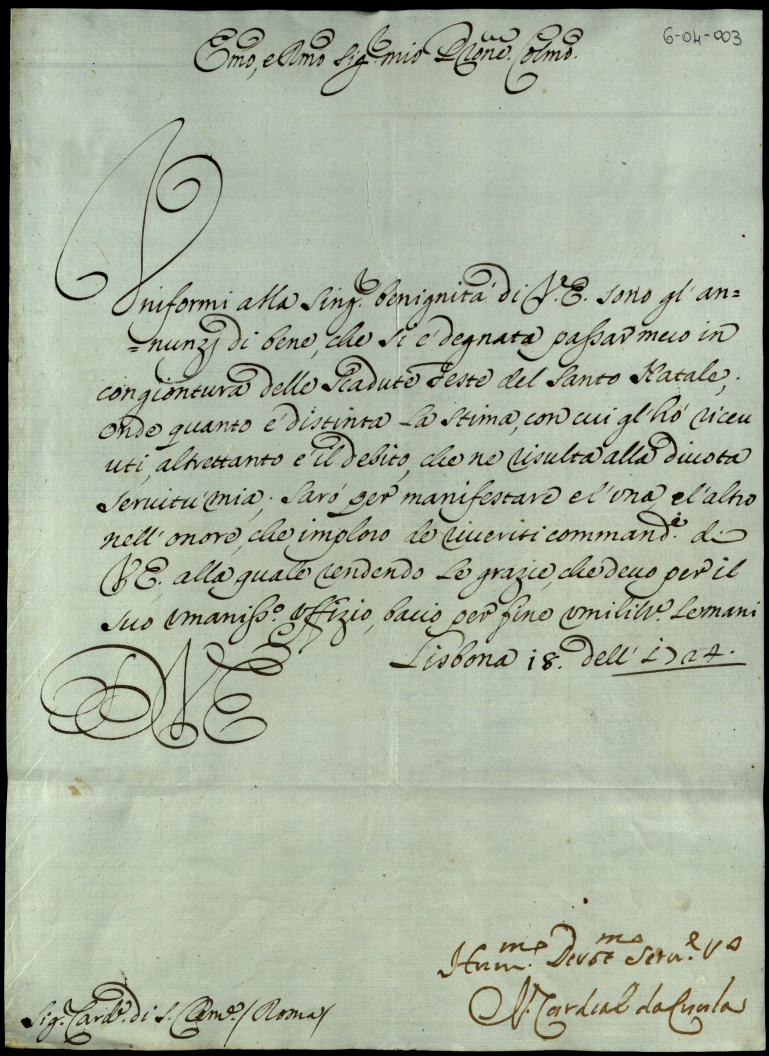 6-04-003
Emo, e Rmo Sigr mio Pròne Colmo.
Vniformi alla Singr. benignità di V. E. sono gl' an=
=nunzj di bene, che si è degnata passar meco in
congiontura delle Scadute Feste del Santo Natale;
Onde quanto è distinta La Stima, con cui gl' hò riceu
uti, altrettanto è il debito, che ne risulta alla diuota
seruitù mia; Sarò per manifestare e l' vna, e l' altro
nell' onore, che imploro de riueriti commandi. di
V. E. alla quale rendendo Le grazie, che deuo per il
suo vmaniss.o Vffizio, bacio per fine vmilmte. Le mani
Lisbona 18. dell' 1724.
DVE
Hummo. Devotmo Serure. Vo
N. Cardeal da Cunha
Sigr. Card. di S. Clemte. / Roma /